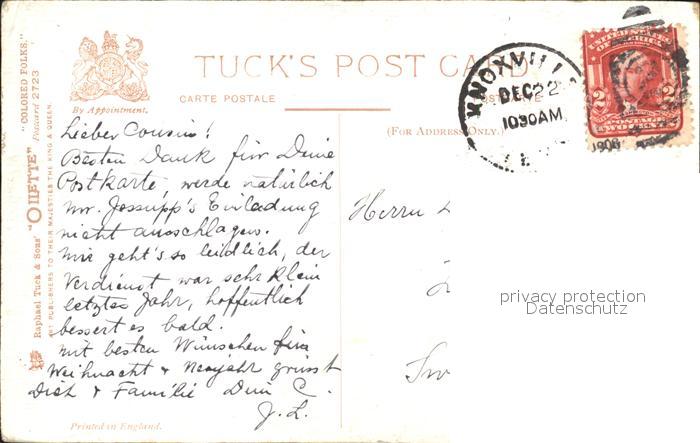 "COLORED FOLKS."
Raphael Tuck & Sons' "OILETTE" Postcard 2723
ART PUBLISHERS TO THEIR MAJESTIES THE KING & QUEEN.
By Appointment.
TUCK'S POST CARD
CARTE POSTALE
(FOR ADDRESS ONLY.)
KNOXVILL
DEC 22
1030AM
1906
UNITED STATES
OF AMERICA
2 2
POSTAGE
TWO CENTS
Lieber Cousin!
Besten Dank für Deine
Postkarte, werde natürlich
Mr. Jessupp's Einladung
nicht ausschlagen.
Mir geht's so leidlich, der
Verdienst war sehr klein
letztes Jahr, hoffentlich
bessert es bald.
Mit besten Wünschen für
Weihnacht & Neujahr grüsst
Dich & Familie Dein C.
J. L.
Herrn
privacy protection
Datenschutz
Printed in England.